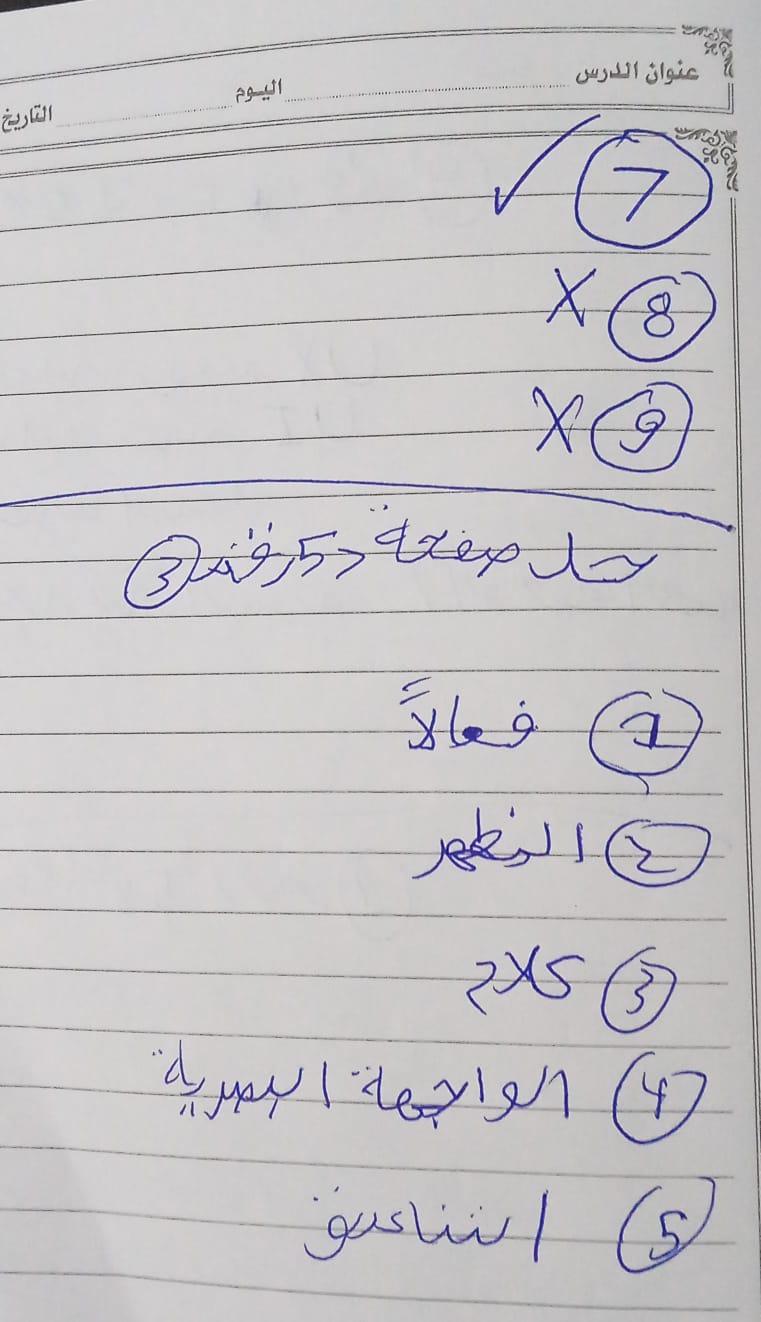 عنوان الدرس اليوم التاريخ
7 ✓
8 X
9 X
حل صفحة 25 رقم 3
1 فعالاً
2 المظهر
3 كلاح
4 الواجهة البصرية
5